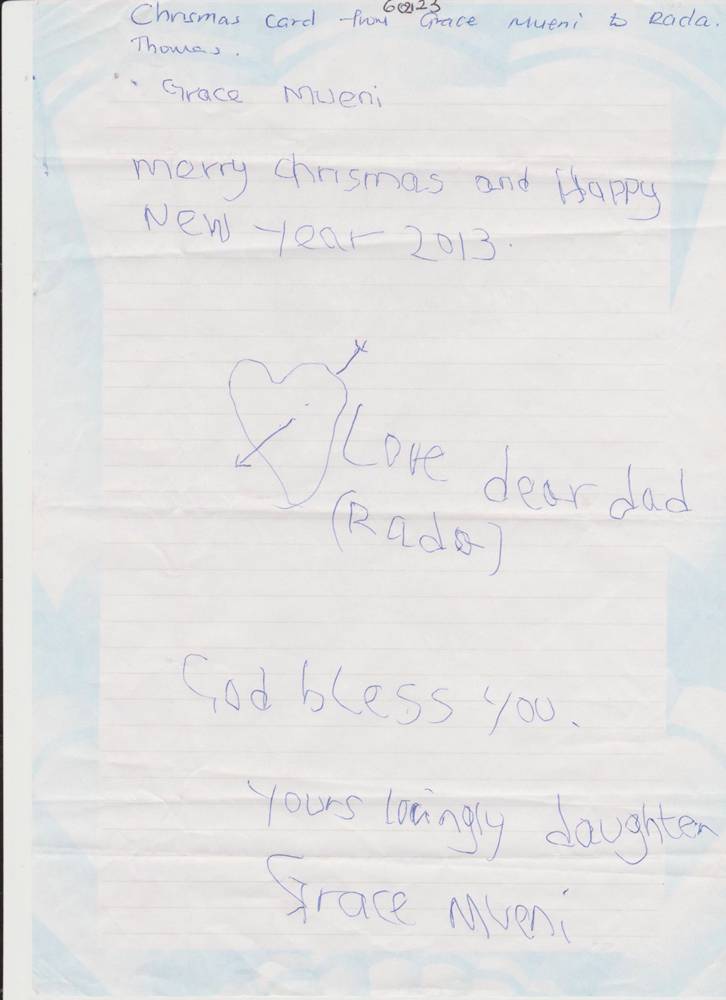 60123
Chrismas card from Grace Mueni to Rada.
Thomas.
Grace Mueni
merry chrismas and Happy
New year 2013.
Love dear dad
(Rada)
God bless you.
Yours lovingly daughter
Grace Mueni